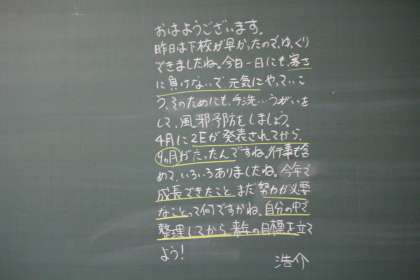 おはようございます。
昨日は下校が早かったので、ゆっくり
できましたね。今日一日にも、寒さ
に負けないで元気にやっていこ
う。そのためにも、手洗い、うがいを
して、風邪予防をしましょう。
4月に2Eが発表されてから、
9ヵ月がたったんですね。行事も含
めて、いろいろありましたね。今年で
成長できたこと、また努力が必要
なことって何ですかね。自分の中で
整理してから来年の目標を立て
よう!
浩介